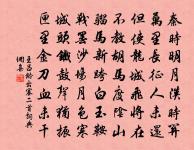 秦時明月漢時關
萬里長征人未還
但使龍城飛將在
不教胡馬度陰山
騮馬新跨白玉鞍
戰罷沙場月色寒
城頭鐵鼓聲猶振
匣里金刀血未干
王昌齡出塞二首詞典
網集